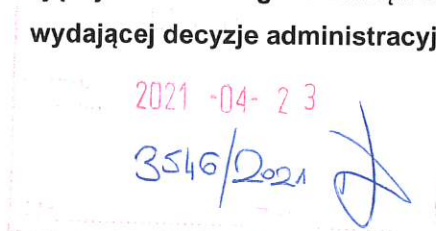 wydającej decyzje administracyj
2021 -04- 23
3546/2021